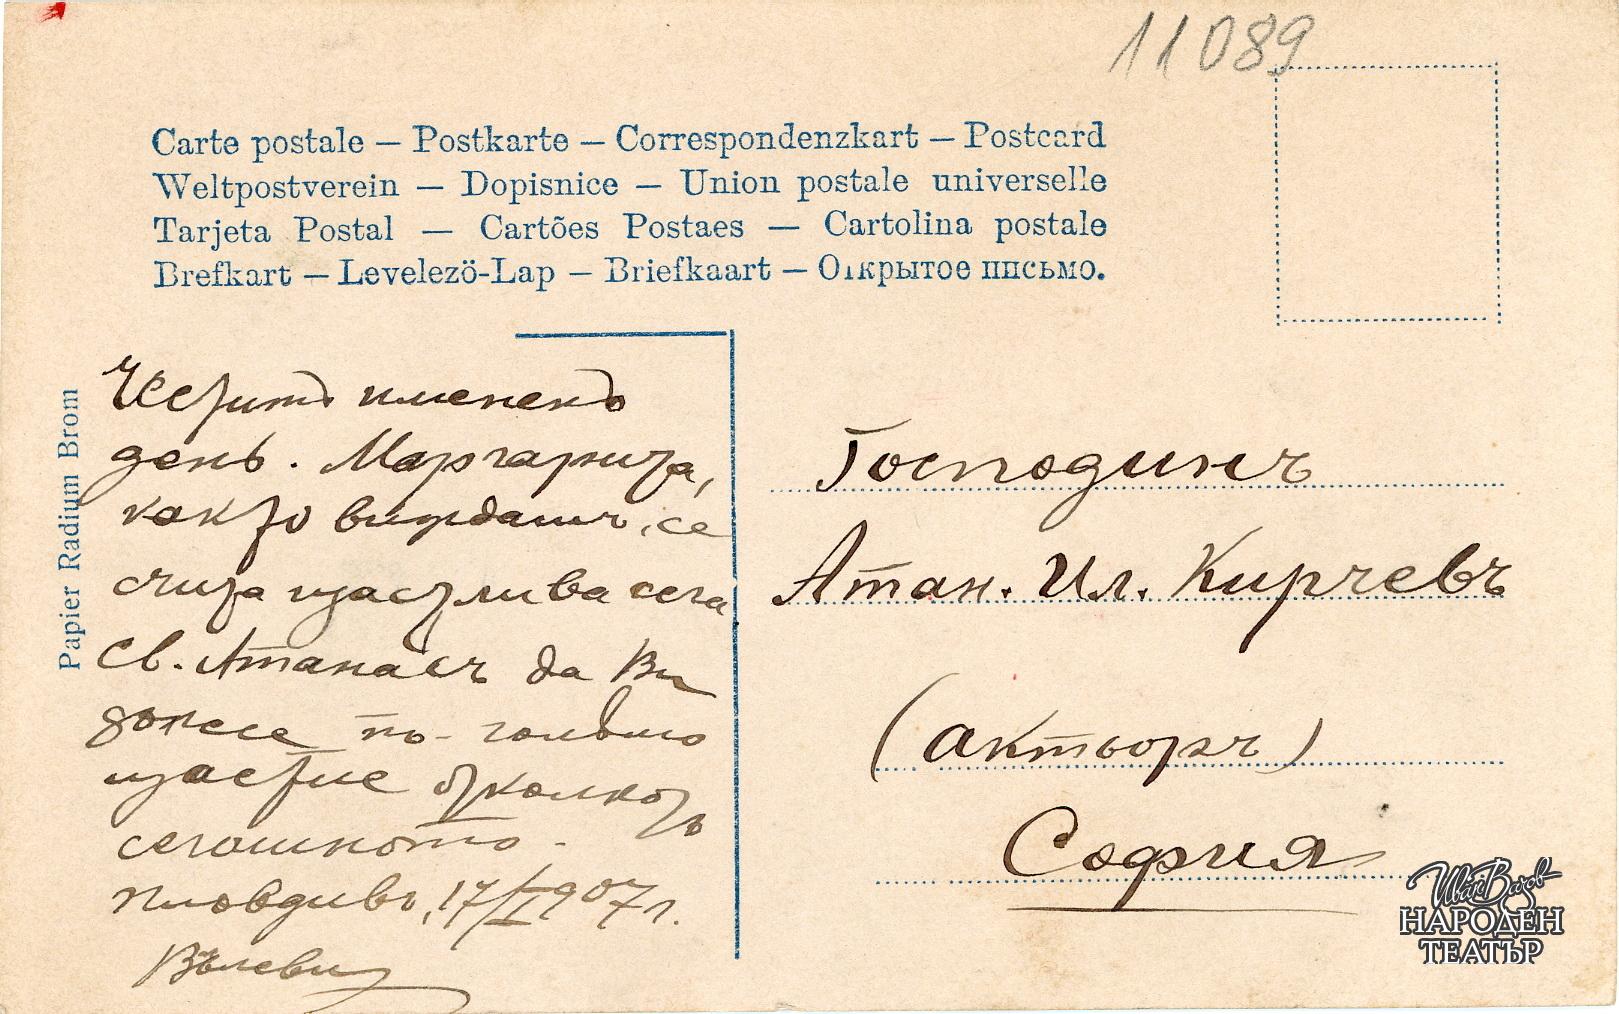 11089
Carte postale — Postkarte — Correspondenzkart — Postcard
Weltpostverein — Dopisnice — Union postale universelle
Tarjeta Postal — Cartões Postaes — Cartolina postale
Brefkart — Levelezö-Lap — Briefkaart — Открытое письмо.
Papier Radium Brom
Честитъ имененъ
день. Маргарита,
както виждашъ, се
счита щастлива сега
Св. Атанасъ да Ви
донесе по-голѣмо
щастие отколкотъ
сегашното.
Пловдивъ, 17/I 907 г.
Господинъ
Атан. Ил. Кирчевъ
(актьоръ)
София
Иван Вазов
НАРОДЕН
ТЕАТЪР